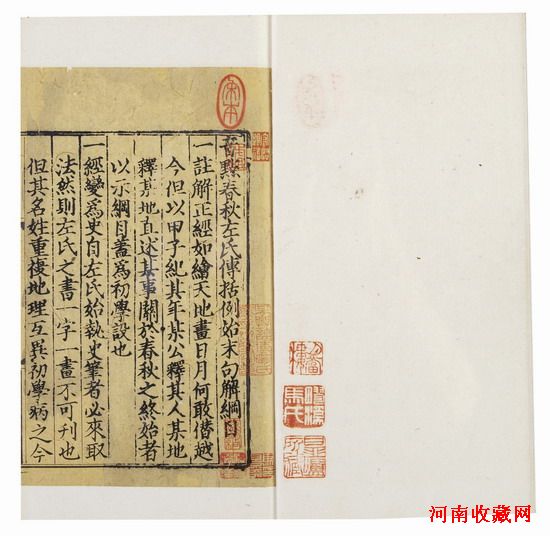 宋本
音點春秋左氏傳括例始末句解綱目
一註解正經如繪天地畫日月何敢僭越
今但以甲子紀其年某公釋其人某地
釋某地直述其事關於春秋之終始者
以示綱目蓋爲初學設也
一經變爲史自左氏始執史筆者必來取
法然則左氏之書一字一畫不可刊也
但其名姓重複地理互異初學病之今
河南收藏网